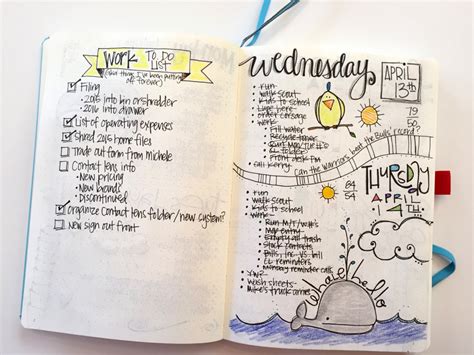 Work TO DO
LIST
(aka things I've been putting
off forever)
Filing
- 2015 into bin or shredder
- 2016 into drawer
List of operating expenses
Shred 2015 home files
Trade out form from Michele
Contact lens info
- New pricing
- New brands
- Discontinued
Organize contact lens folder/new system?
New sign out front
Wednesday
APRIL
13th
run
walk scout
kids to school
order corsage
work
- Fill water
- Recycle toner
- CL folder
- Front desk FM
call kerry
79
50
Can the Warriors beat the Bulls record?
84
54
THURSDAY
APRIL
14TH
run
walk scout
kids to school
work
- Run M/T/W's
- MD entry
- Empty all trash
- Stock contacts
- Bills, Inc. VS bill
- CL reminders
- Monday reminder calls
Wash sheets
Mike's truck
Whale hello